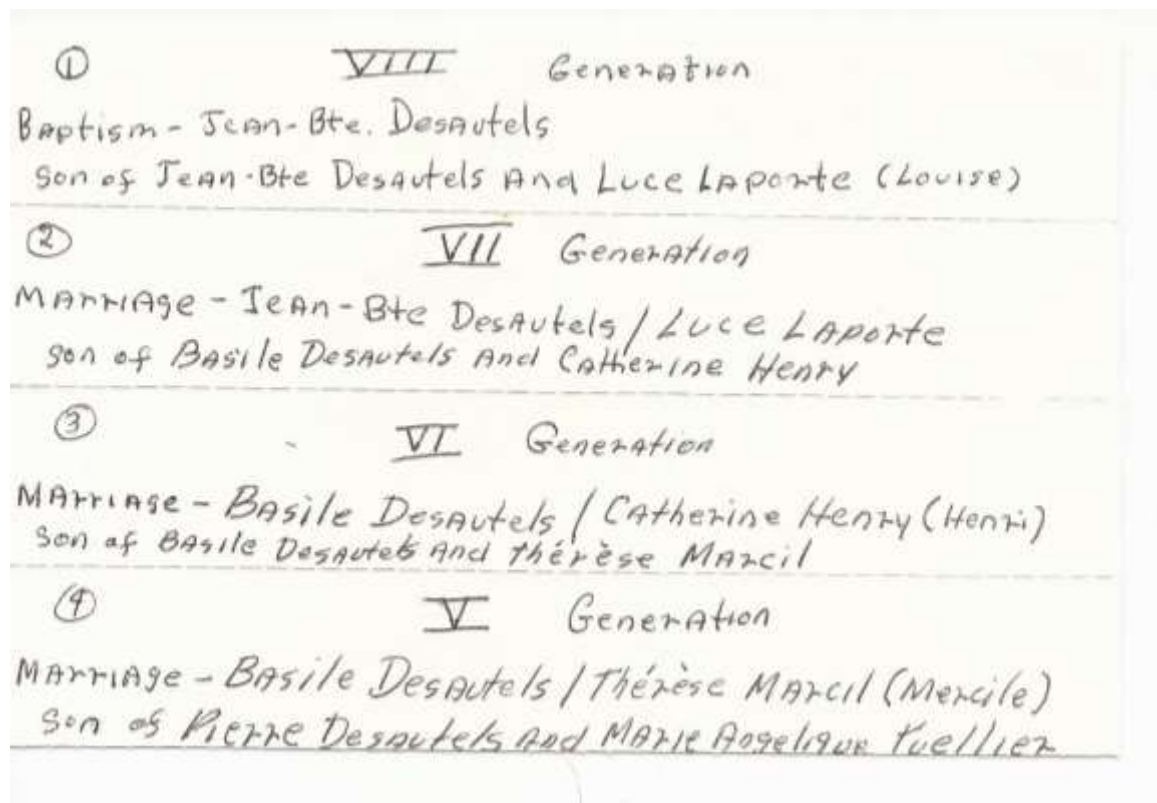 ① VIII Generation
Baptism - Jean-Bte. Desautels
son of Jean-Bte Desautels and Luce Laporte (Louise)
② VII Generation
Marriage - Jean-Bte Desautels / Luce Laporte
son of Basile Desautels and Catherine Henry
③ VI Generation
Marriage - Basile Desautels / Catherine Henry (Henri)
son of Basile Desautels and Thérèse Marcil
④ V Generation
Marriage - Basile Desautels / Thérèse Marcil (Mercile)
son of Pierre Desautels and Marie Angelique